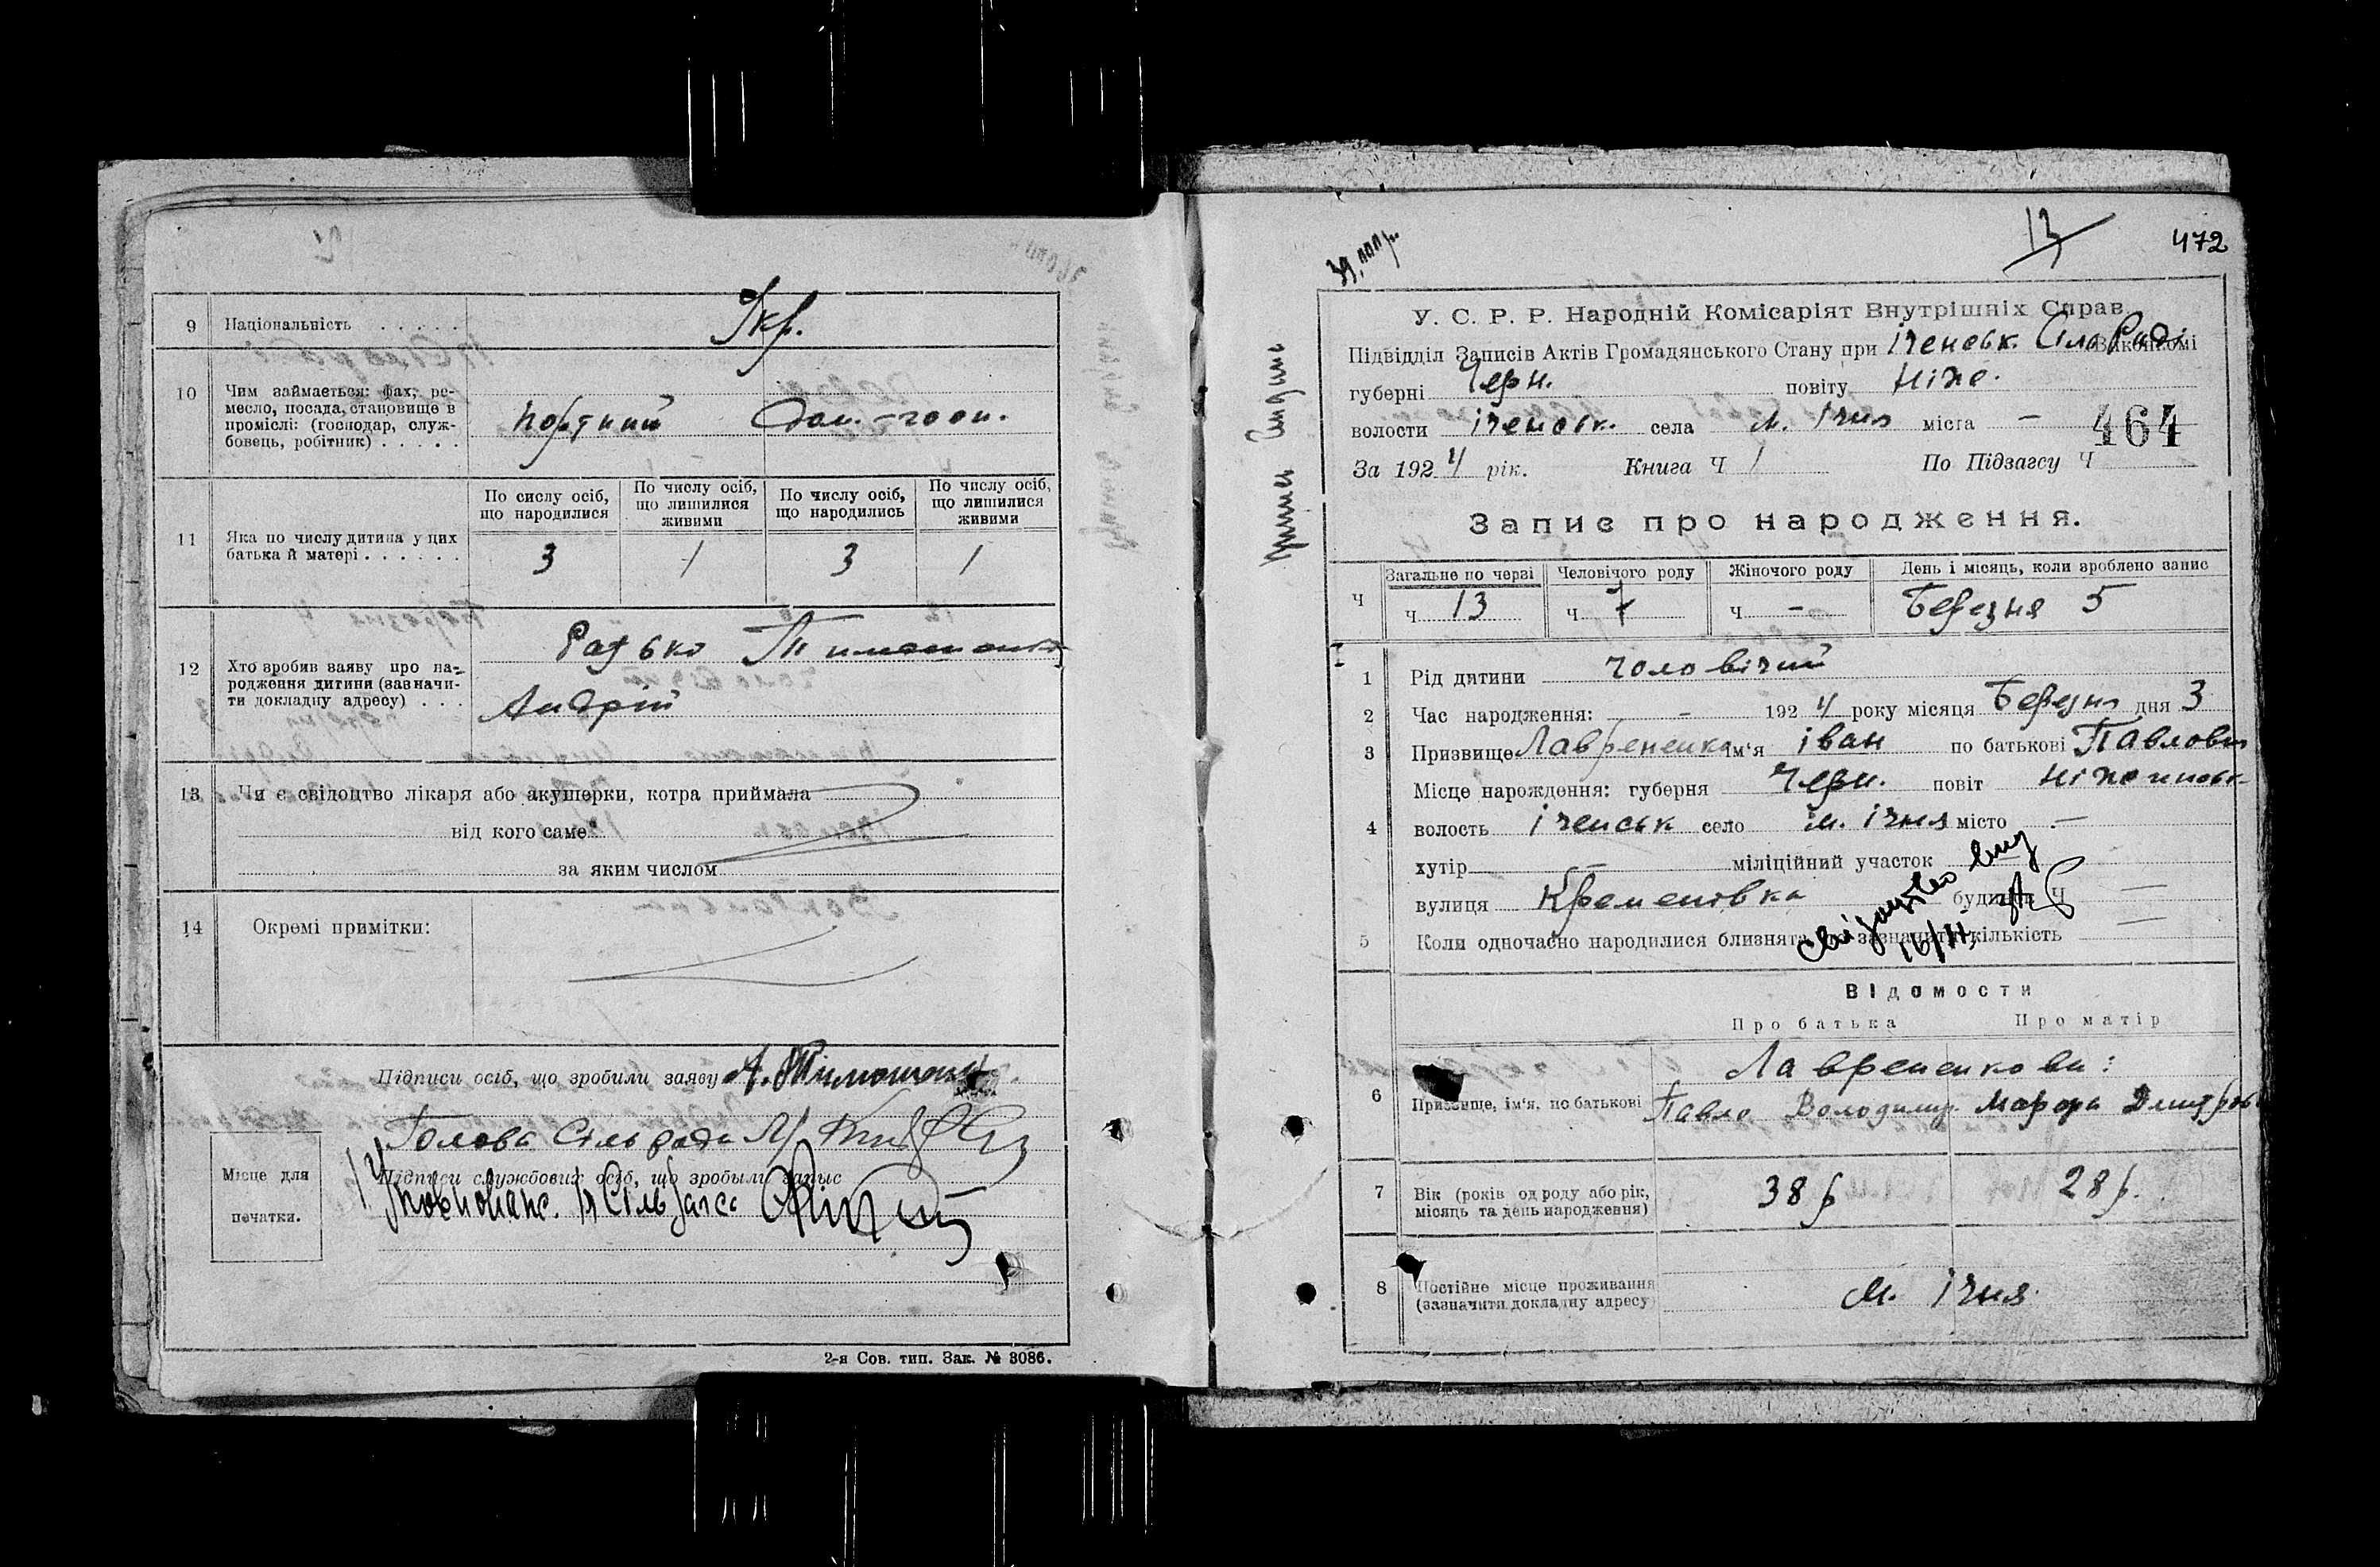 9 Національність . . . . . Укр.
10 Чим займається: фах, ре-
месло, посада, становище в
проміслі: (господар, служ-
бовець, робітник) . . . . .
портний Дом.-госп.
11 Яка по числу дитина у цих
батька й матері . . . . . .
По сислу осіб,
що народилися
По числу осіб,
що лишилися
живими
По числу осіб,
що народились
По числу осіб,
що лишилися
живими
3 1 3 1
12 Хто зробив заяву про на-
родження дитини (зазначи-
ти докладну адресу) . . .
Батько
Андрій
13 Чи є свідоцтво лікаря або акушерки, котра приймала
від кого саме
за яким числом
14 Окремі примітки:
Підписи осіб, що зробили заяву А. Тимошенко
Голова Сільради
Підписи службових осіб, що зробыли запыс
Місце для
печатки.
2-я Сов. тип. Зак. № 3086.
13
472
У. С. Р. Р. Народній Комісаріят Внутрішніх Справ.
Підвідділ Записів Актів Громадянського Стану при Іченськ. СілаРаді Виконкомі
губерні Черн. повіту Ніже.
волости Іченськ. села м. Ічня міста —
464
За 1924 рік. Книга Ч 1 По Підзагсу Ч
Запис про народження.
Ч
Загальне по черзі Человічого роду Жіночого роду День і місяць, коли зроблено запис
Ч 13 Ч 7 Ч – Березня 5
1 Рід дитини чоловічий
2 Час народження: – 1924 року місяця Березня дня 3
3 Призвище Лавренченко ім‘я Іван по батькові Павлович
Місце народження: губерня Черн. повіт Ніженськ
4 волость Іченськ село м. Ічня місто —
хутір — міліційний участок
вулиця Кременівка будинок Ч —
5 Коли одночасно народилися близнята, то зазначити кількість —
Свідоцтво вид
16/IV
Відомости
Про батька Про матір
6 Призвище, ім‘я, по батькові
Лаврененкови:
Павло Володимир. Марфа Дмитров
7 Вік (років од роду або рік,
місяць та день народження)
38 р 28 р.
8 Постійне місце проживання
(зазначити докладну адресу)
м. Ічня.